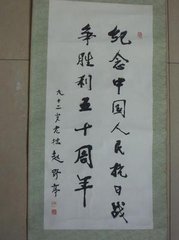 纪念中国人民抗日战
争胜利五十周年
九十二叟老拙赵野亭